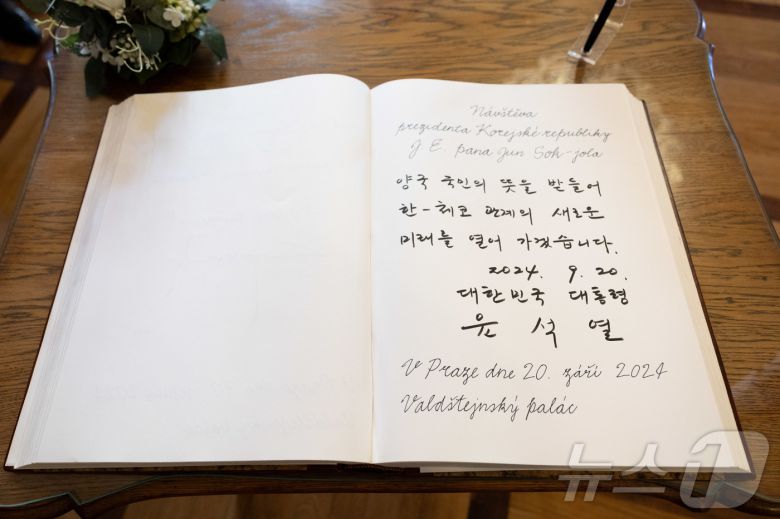 Návštěva
prezidenta Korejské republiky
J. E. pana Jun Sok-jola
양국 국민의 뜻을 받들어
한-체코 관계의 새로운
미래를 열어 가겠습니다.
2024. 9. 20.
대한민국 대통령
윤 석 열
V Praze dne 20. září 2024
Valdštejnský palác
뉴스1